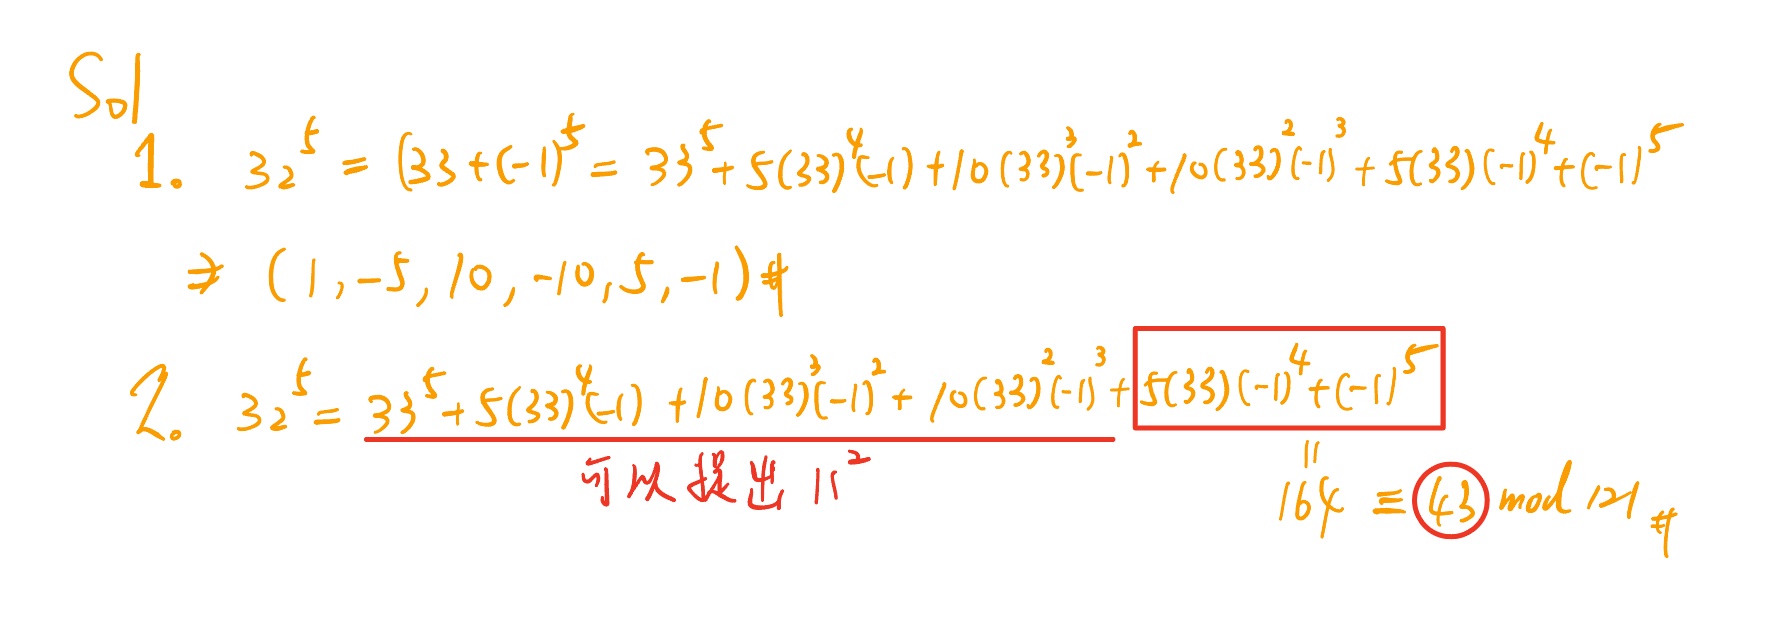 Sol
1. 32^5 = (33+(-1)^5 = 33^5+5(33)^4(-1)+10(33)^3(-1)^2+10(33)^2(-1)^3+5(33)(-1)^4+(-1)^5
⇒ (1,-5,10,-10,5,-1)#
2. 32^5 = 33^5+5(33)^4(-1)+10(33)^3(-1)^2+10(33)^2(-1)^3+5(33)(-1)^4+(-1)^5
可以提出 11^2
=
164 ≡ 43 mod 121 #